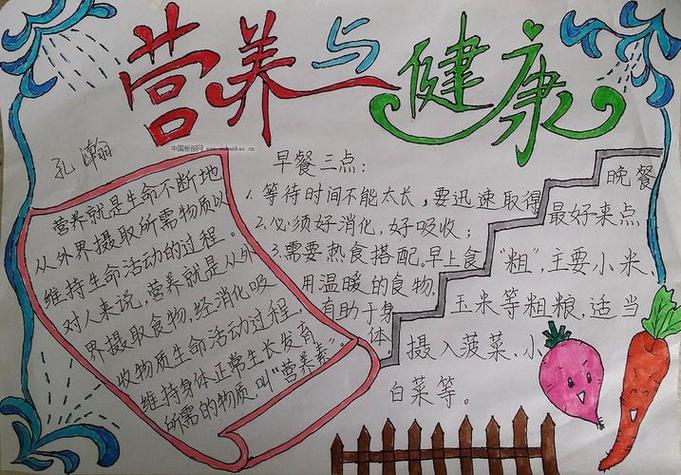 营养与健康
中国板报网 www.cnbanbao.cn
孔瀚
营养就是生命不断地
从外界摄取所需物质以
维持生命活动的过程。
对人来说,营养就是从外
界摄取食物,经消化吸
收物质生命活动过程,
维持身体正常生长发育
所需的物质,叫“营养素”。
早餐三点:
1.等待时间不能太长,要迅速取得
2.必须好消化,好吸收;
3.需要热食搭配。早上食
用温暖的食物,
有助于身
体
晚餐
最好来点
“粗”,主要小米、
玉米等粗粮,适当
摄入菠菜、小
白菜等。